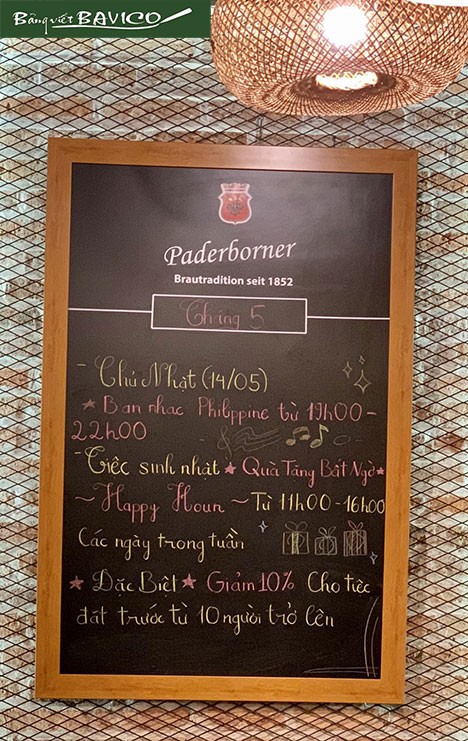 Bảng viết BAVICO
Paderborner
Brautradition seit 1852
Tháng 5
- Chủ Nhật (14/05)
★ Ban nhạc Philppine từ 19h00 -
22h00
- Tiệc sinh nhật ★ Quà Tặng Bất Ngờ ★
~ Happy Houn ~ Từ 11h00 - 16h00
Các ngày trong tuần
★ Đặc Biệt ★ Giảm 10% Cho tiệc
đặt trước từ 10 người trở lên